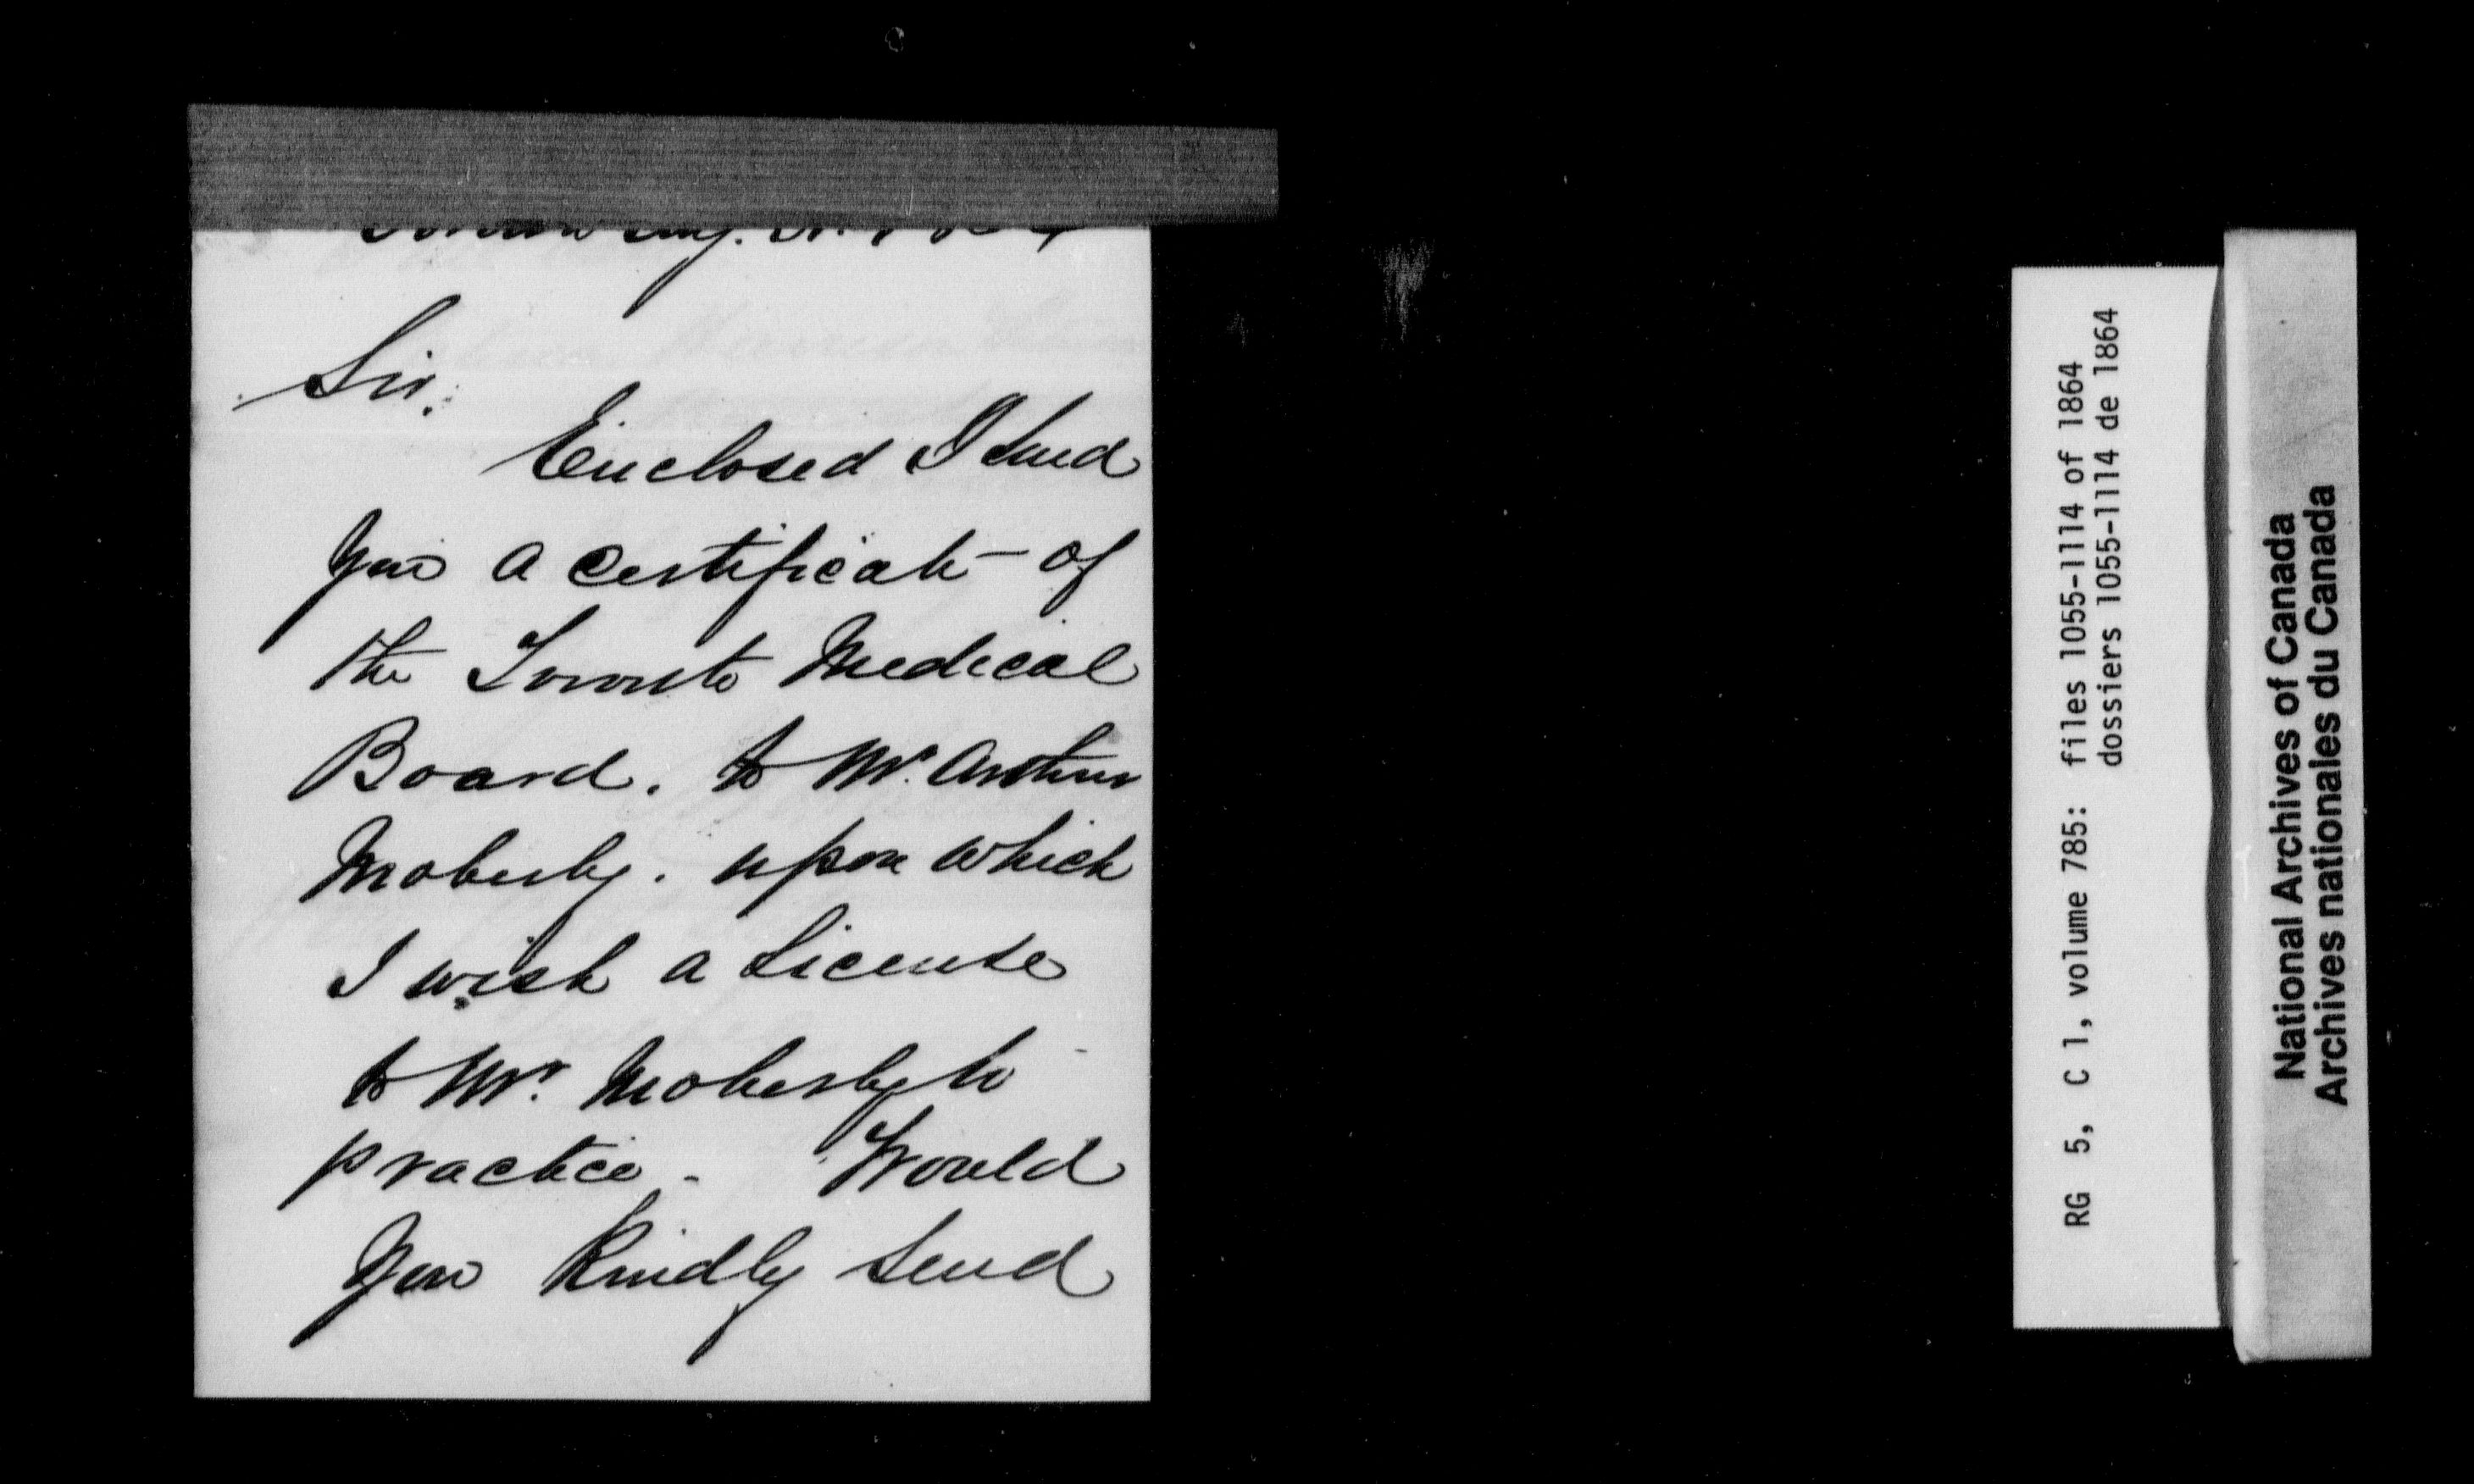 Sir.
Enclosed I send
you a certificate of
the Toronto Medical
Board. to Mr. Arthur
Moberly. upon which
I wish a License
to Mr. Moberly to
practice. Would
you kindly send
RG 5, C 1, volume 785: files 1055-1114 of 1864
dossiers 1055-1114 de 1864
National Archives of Canada
Archives nationales du Canada